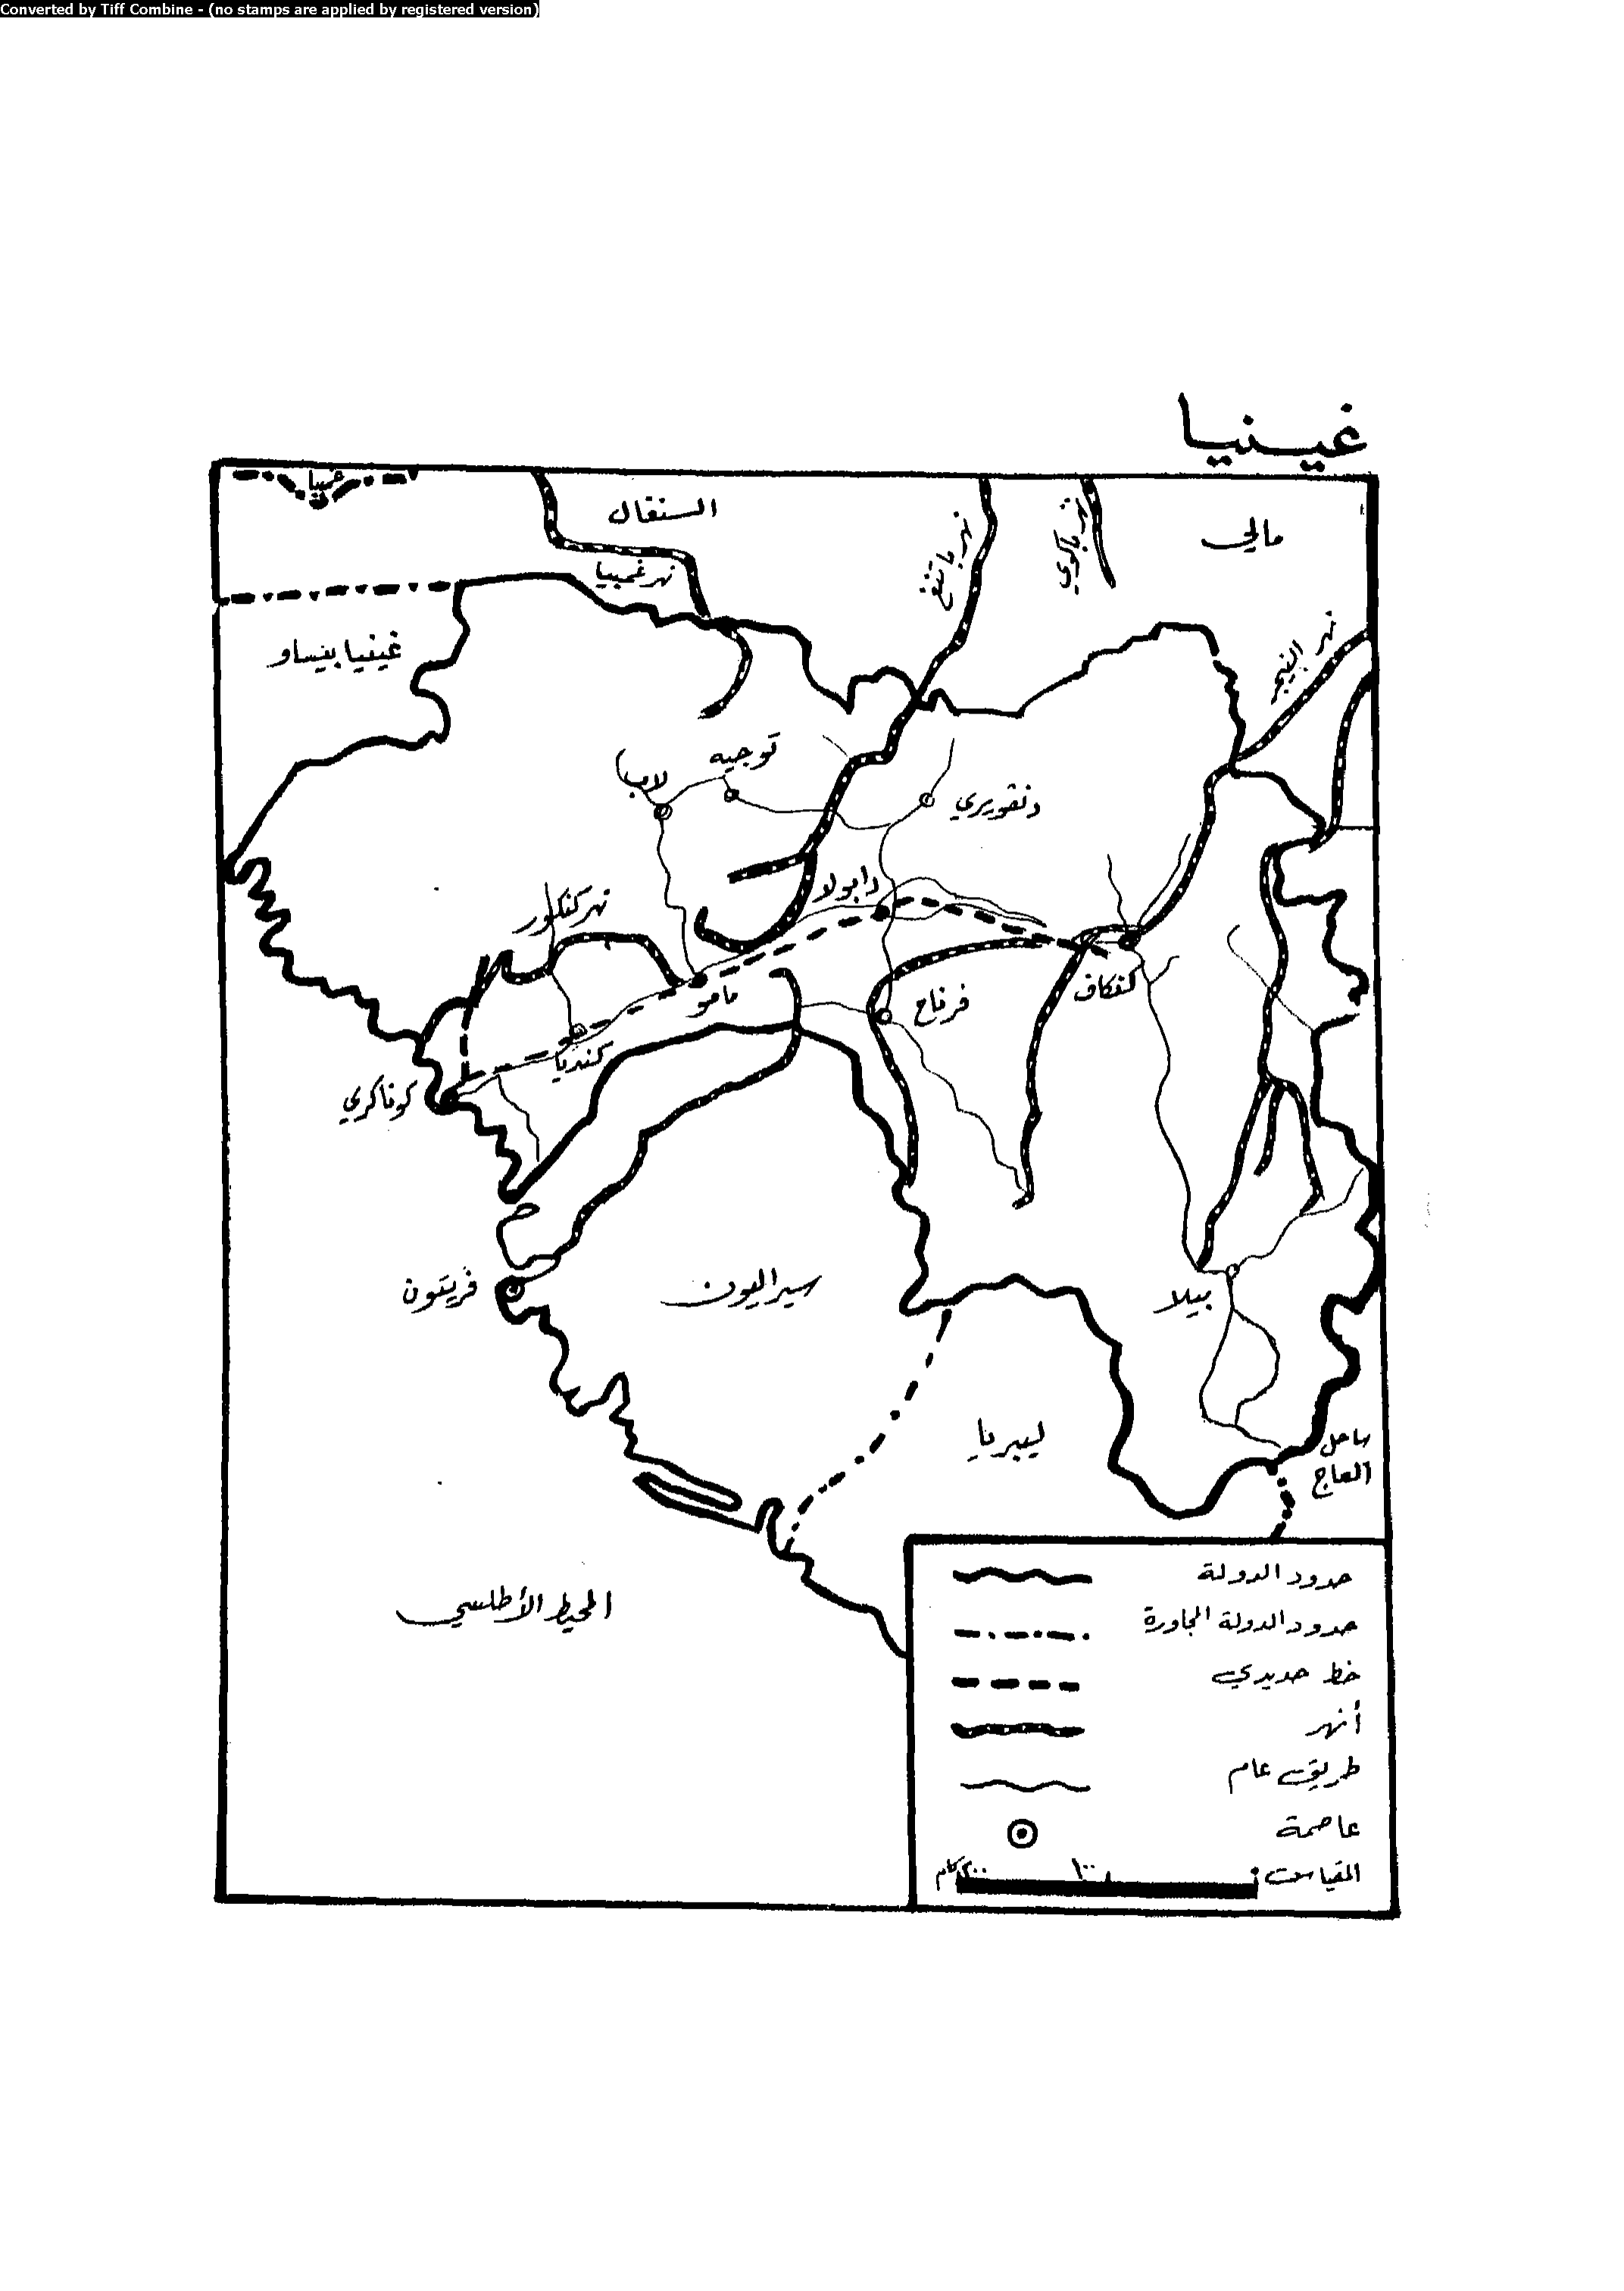 Converted by Tiff Combine - (no stamps are applied by registered version)
غينيا
غمبيا
السنغال
مالي
نهر غمبيا
نهر باتنغ
نهر باكوي
نهر النيجر
غينيا بيساو
توجيه
لابا
دنقويري
دابولا
نهر كنكور
مامو
فرناح
كنكاف
كنديا
كوناكري
فريتون
سيراليون
بيلا
ليبريا
ساحل
العاج
المحيط الأطلسي
حدود الدولة
حدود الدولة المجاورة
خط حديدي
أنهر
طريق عام
عاصمة
المقياس ٠ ١٠٠ ٢٠٠ كم